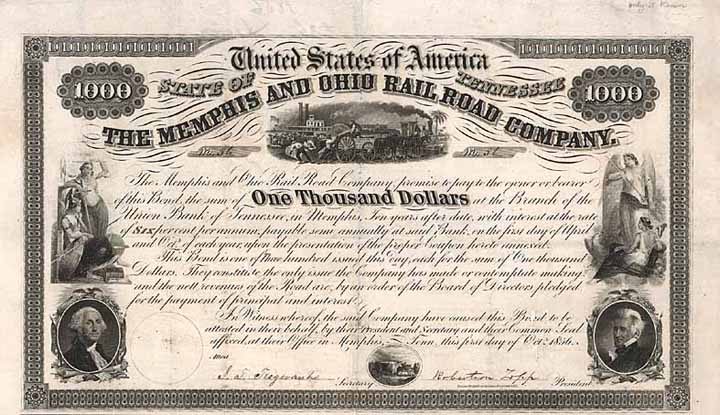 United States of America
STATE OF TENNESSEE
1000 1000
THE MEMPHIS AND OHIO RAIL ROAD COMPANY.
No. 56 No. 56
The Memphis and Ohio Rail Road Company promise to pay to the owner or bearer
of this Bond, the sum of One Thousand Dollars at the Branch of the
Union Bank of Tennessee, in Memphis, Ten years after date, with interest at the rate
of Six per cent per annum, payable semi annually at said Bank, on the first day of April
and Oct. of each year, upon the presentation of the proper Coupon hereto annexed.
This Bond is one of two hundred issued this day, each for the sum of One thousand
Dollars. They constitute the only issue the Company has made or contemplate making
and the nett revenues of the Road are, by an order of the Board of Directors pledged
for the payment of principal and interest.
In Witness whereof, the said Company have caused this Bond to be
attested in their behalf, by their President and Secretary and their Common Seal
affixed, at their Office in Memphis, Tenn, this first day of Oct. 1856.
Secretary Robertson Topp President